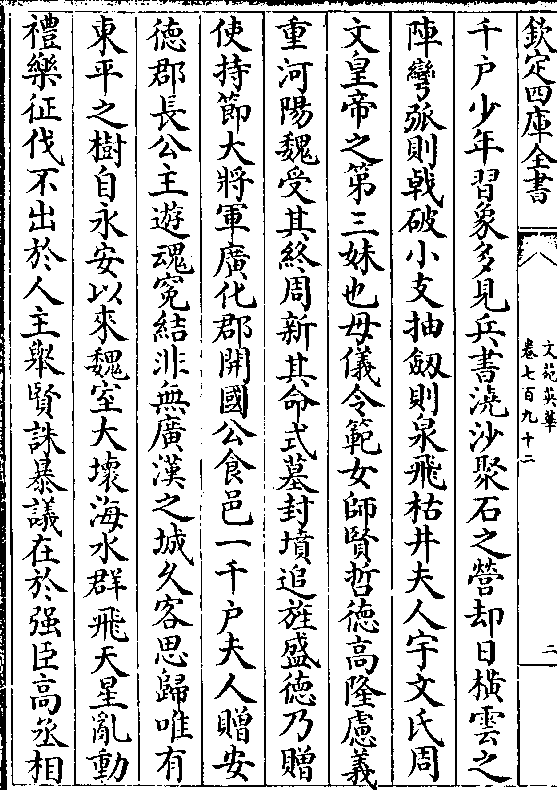 欽定四庫全書
文苑英華
卷七百九十二
二
千户少年習象多見兵書澆沙聚石之營却日橫雲之
陣彎弧則戟破小支抽劔則泉飛枯井夫人宇文氏周
文皇帝之第三妹也母儀令範女師賢哲徳髙隆慮義
重河陽魏受其終周新其命式墓封墳追旌盛徳乃贈
使持節大將軍廣化郡開國公食邑一千户夫人贈安
徳郡長公主遊魂寃結非無廣漢之城久客思歸唯有
東平之樹自永安以來魏室大壞海水群飛天星亂動
禮樂征伐不出於人主舉賢誅暴議在於强臣髙丞相